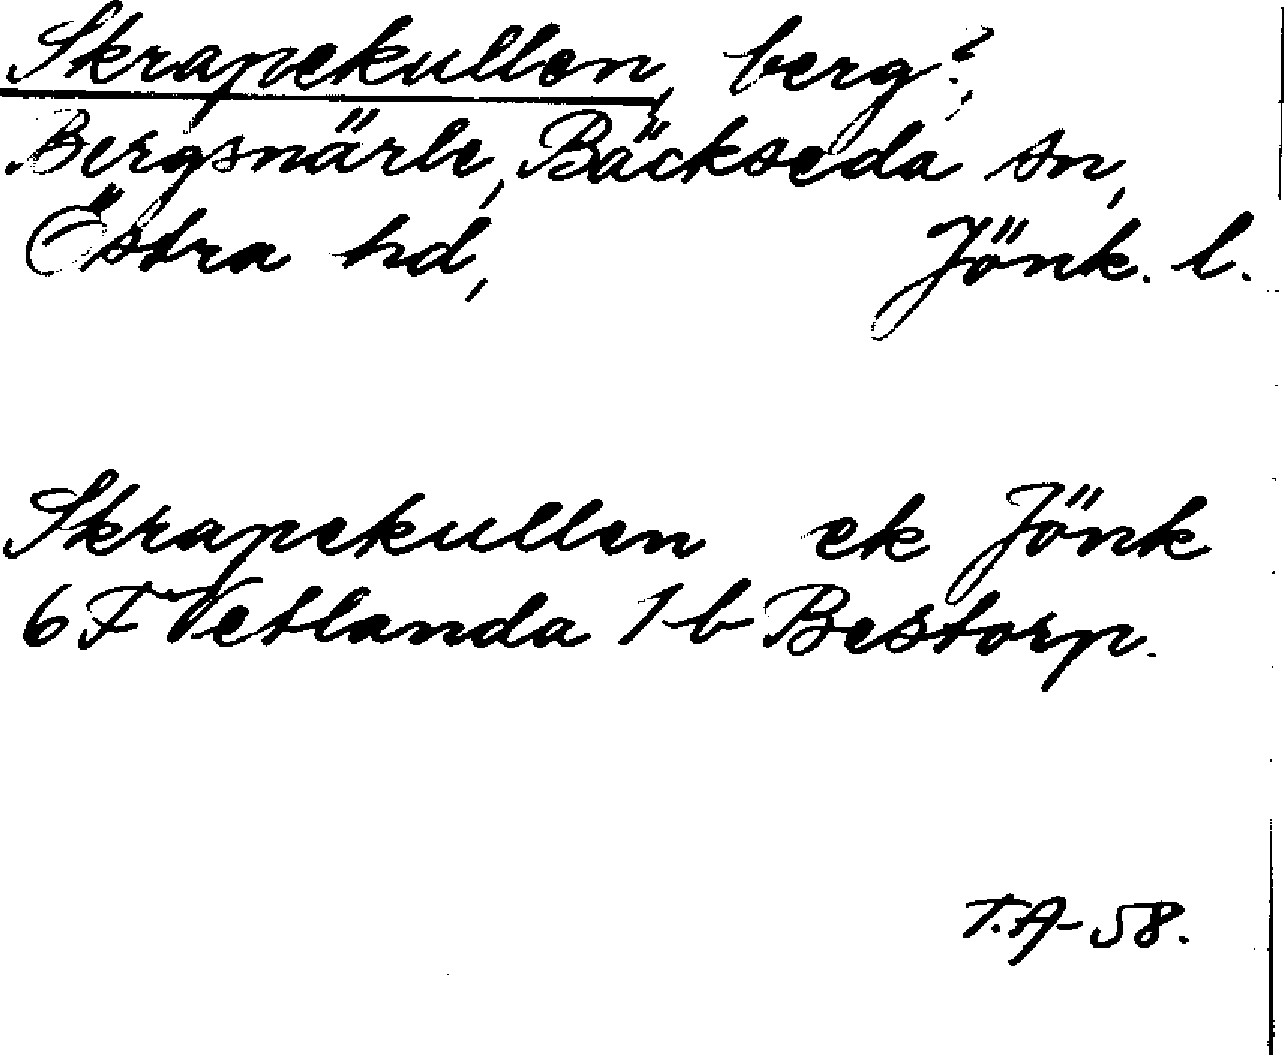 Skrapekullen, berg?,
Bergsnärle, Bäckseda sn,
Östra hd, Jönk. l.
Skrapekullen ek Jönk
6 F Vetlanda 1 b Bestorp.
T.A-58.